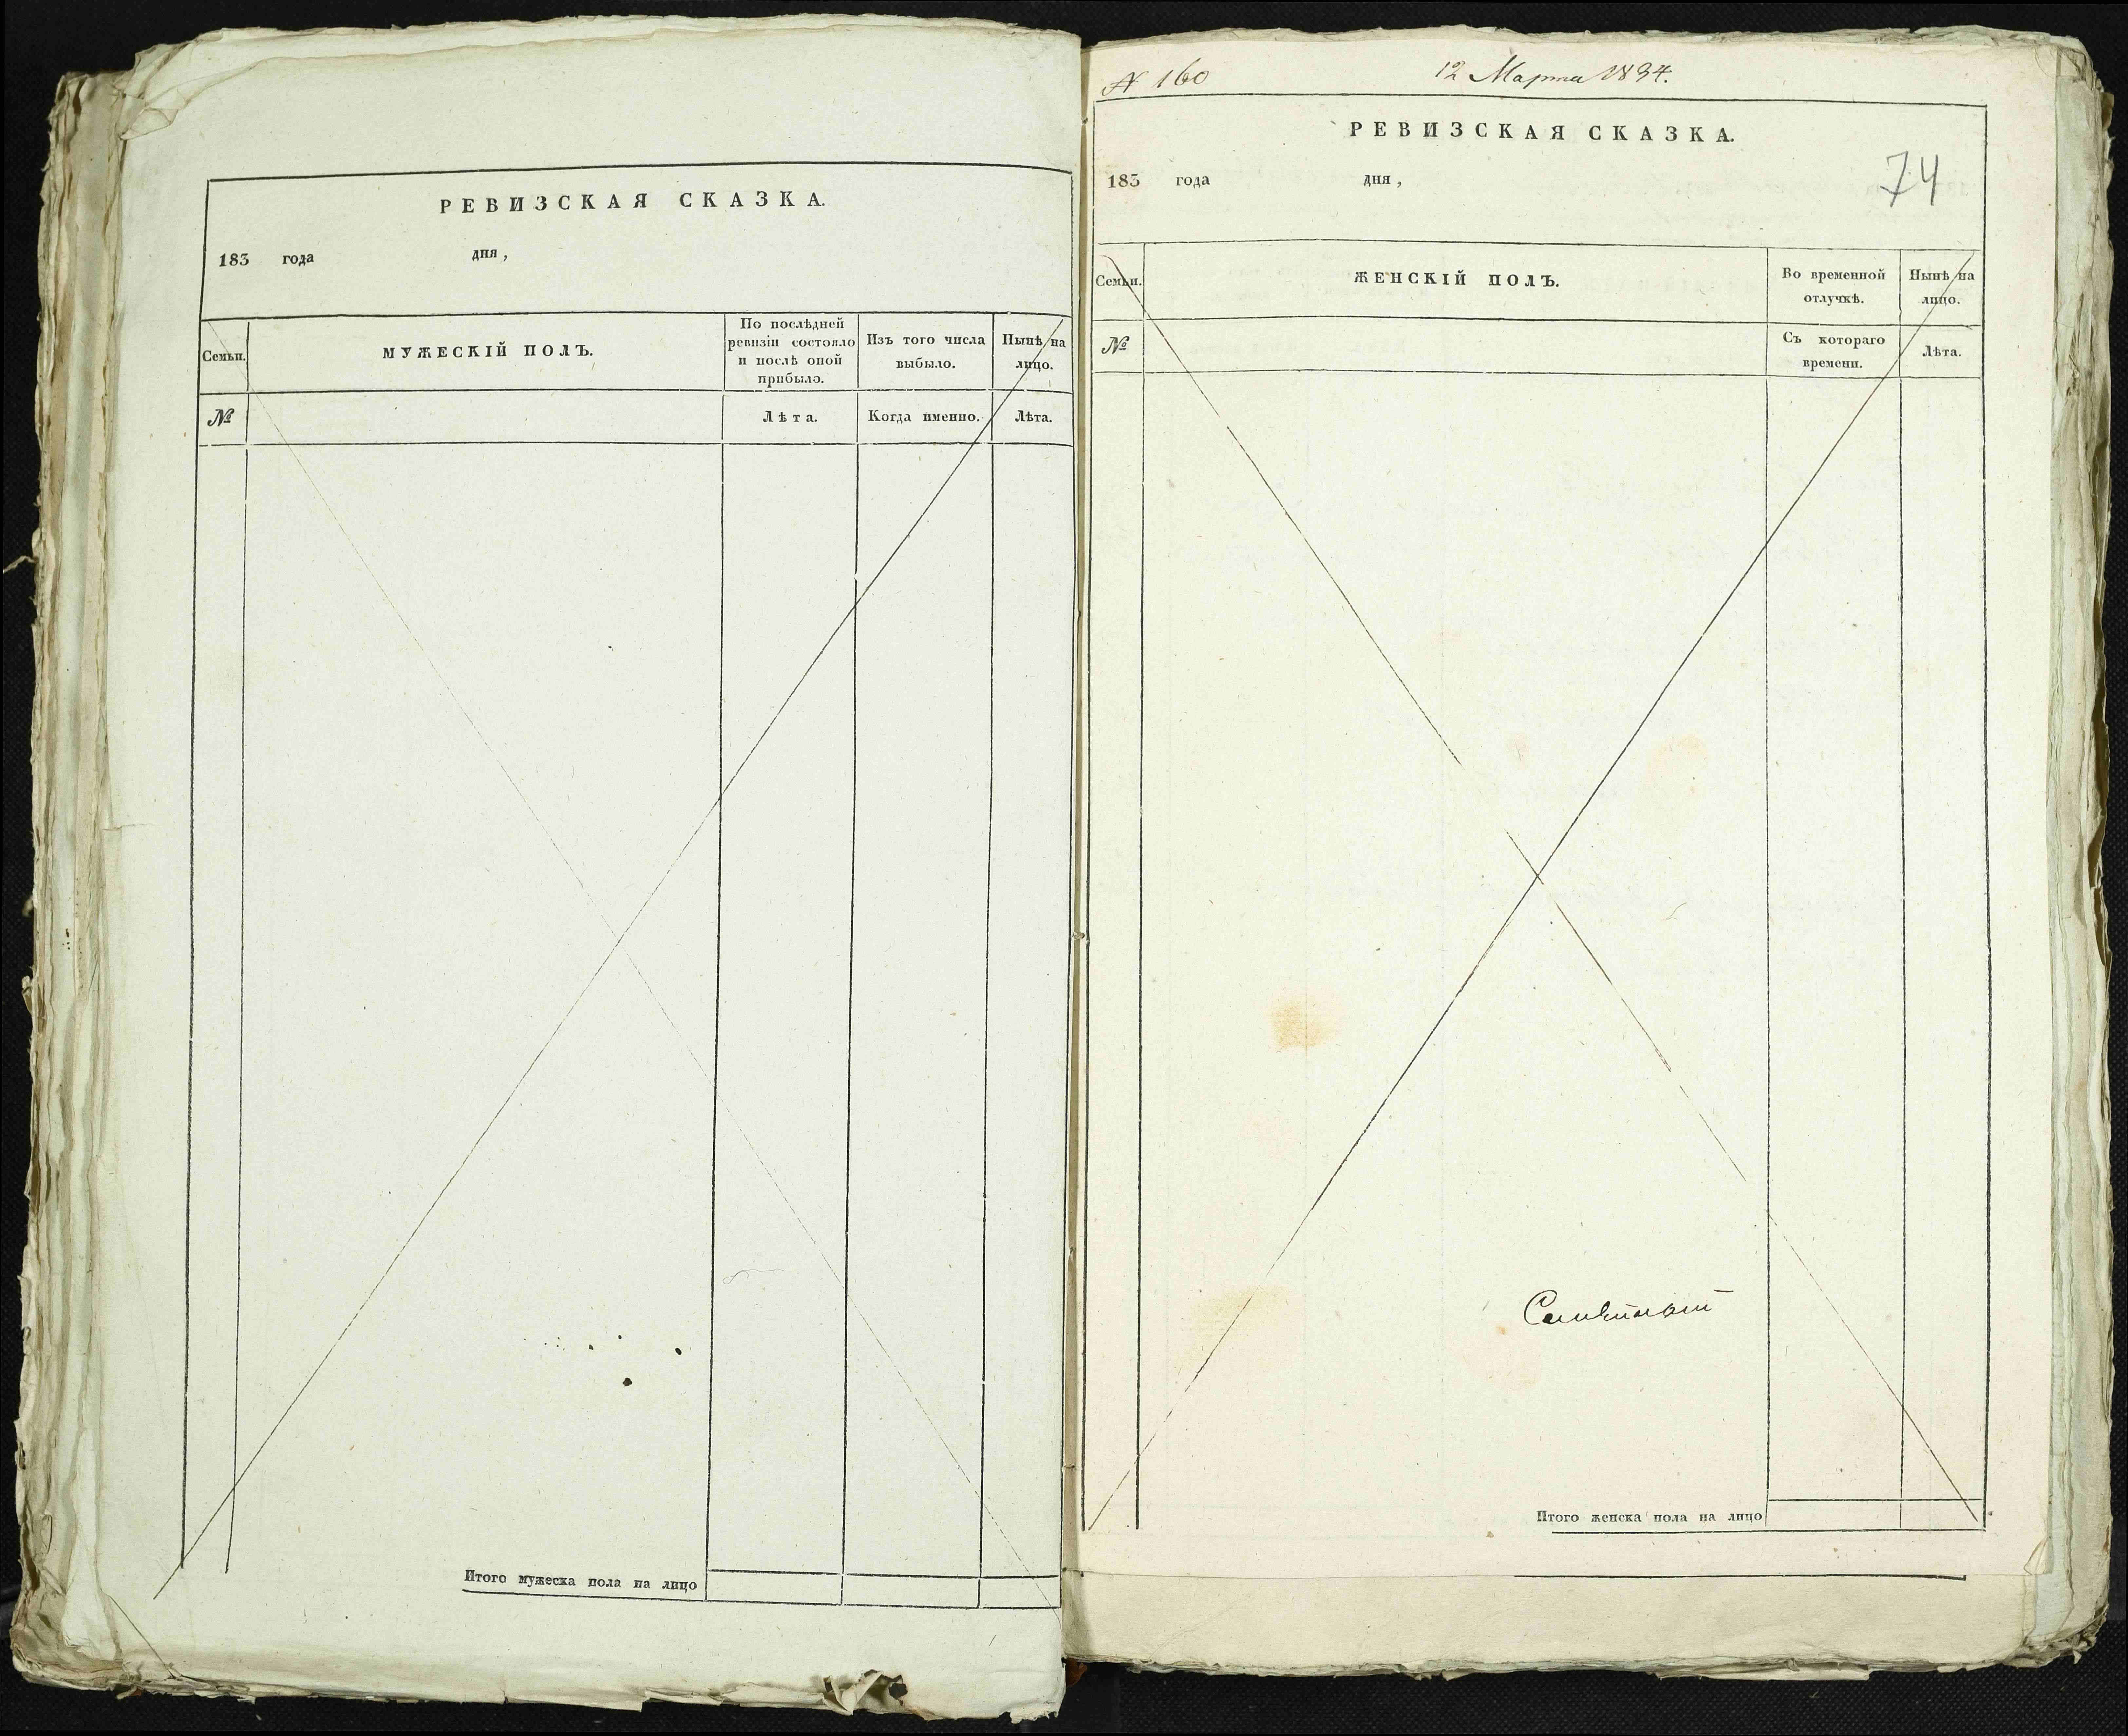 РЕВИЗСКАЯ СКАЗКА.
183 года дня,
Семьи. МУЖЕСКІЙ ПОЛЪ. По послѣдней ревизіи состояло и послѣ оной прибыло. Изъ того числа выбыло. Нынѣ на лицо.
№ Лѣта. Когда именно. Лѣта.
Итого мужеска пола на лицо
№ 160 12 Марта 1834.
РЕВИЗСКАЯ СКАЗКА.
74
183 года дня,
Семьи. ЖЕНСКІЙ ПОЛЪ. Во временной отлучкѣ. Нынѣ на лицо.
№ Съ котораго времени. Лѣта.
Итого женска пола на лицо